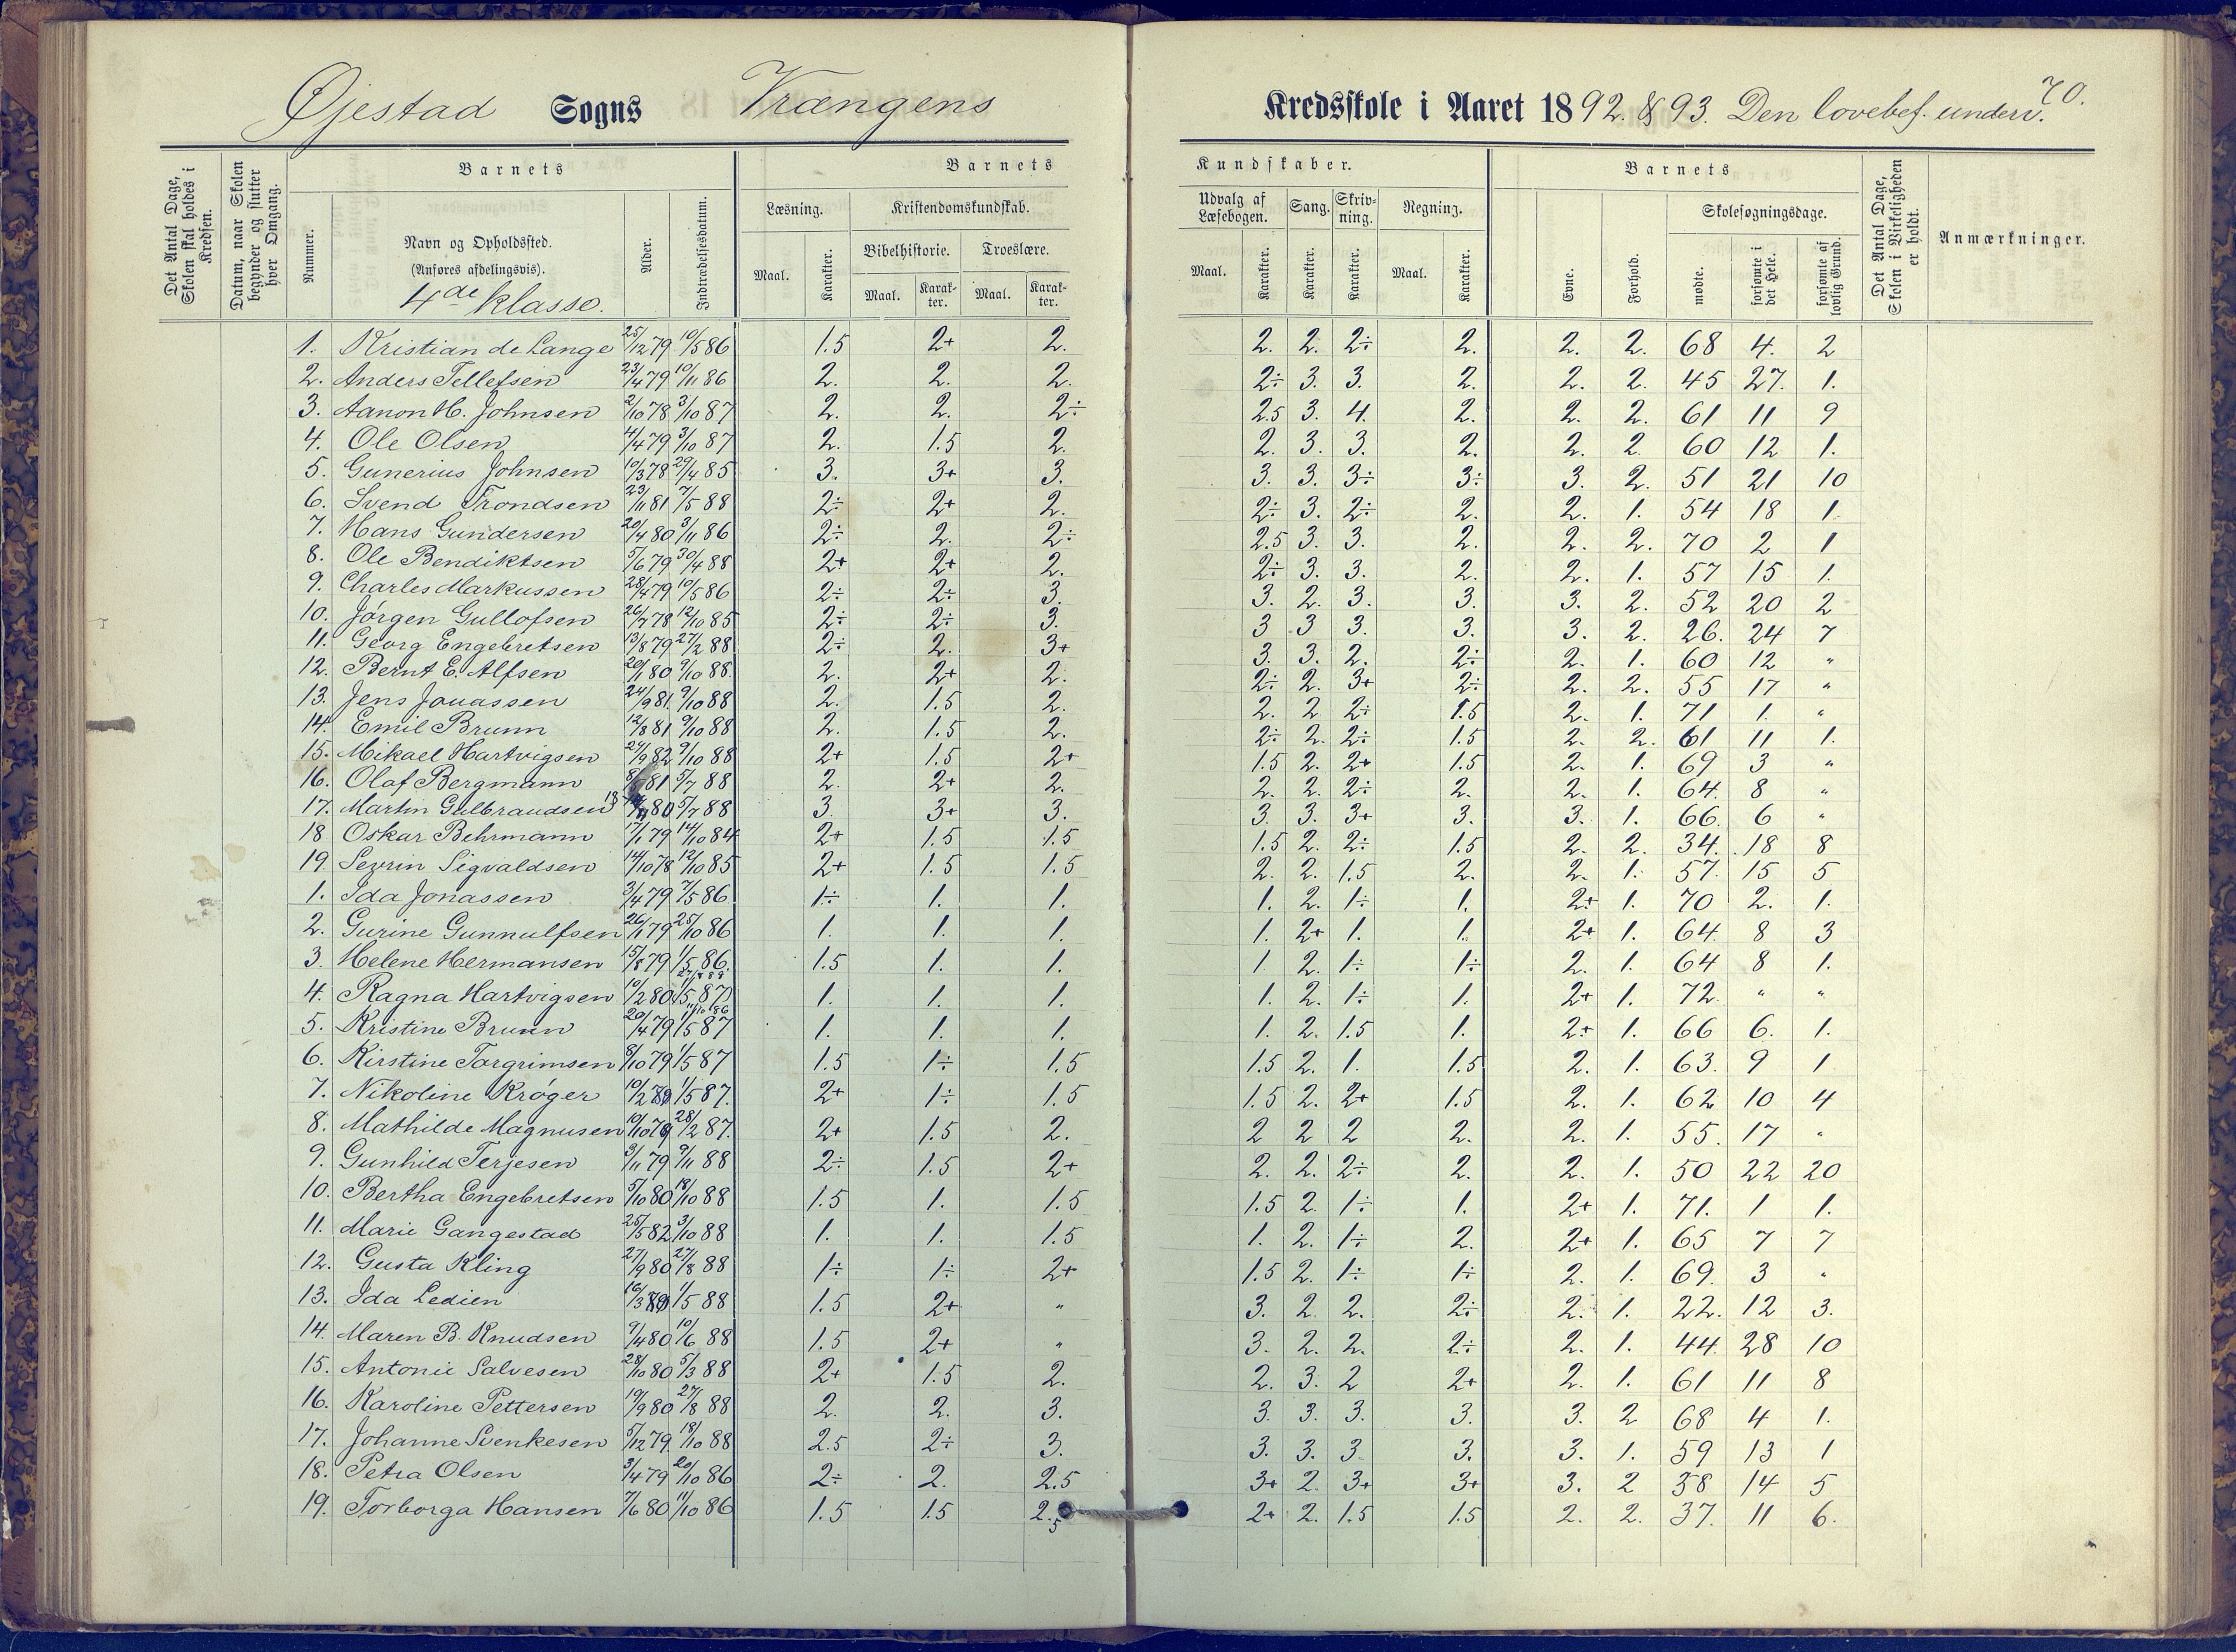 70.
Øjestad Sogns Vrængens Kredsskole i Aaret 1892 & 93. Den lovebef. underv.
Det Antal Dage, Skolen skal holdes i Kredsen.
Datum, naar Skolen begynder og slutter hver Omgang.
Barnets
Nummer.
Navn og Opholdssted.
(Anføres afdelingsvis).
4de klasse.
Alder.
Indtrædelsesdatum.
Barnets Kundskaber.
Læsning.
Maal. Karakter.
Kristendomskundskab.
Bibelhistorie. Troeslære.
Maal. Karakter. Maal. Karakter.
Udvalg af Læsebogen.
Maal. Karakter.
Sang. Karakter.
Skrivning. Karakter.
Regning.
Maal. Karakter.
Barnets
Evne. Forhold.
Skolesøgningsdage.
mødte. forsømte i det Hele. forsømte af lovlig Grund.
Det Antal Dage, Skolen i Virkeligheden er holdt.
Anmærkninger.
1. Kristian de Lange 25/12 79 10/5 86 1.5 2+ 2. 2. 2. 2÷ 2. 2. 2. 68 4. 2
2. Anders Tellefsen 23/4 79 10/11 86 2. 2. 2. 2÷ 3. 3. 2. 2. 2. 45 27. 1.
3. Aanon H. Johnsen 2/10 78 3/10 87 2. 2. 2÷ 2.5 3. 4. 2. 2. 2. 61 11 9
4. Ole Olsen 4/4 79 3/10 87 2. 1.5 2. 2. 3. 3. 2. 2. 2. 60 12 1.
5. Gunerius Johnsen 10/3 78 29/4 85 3. 3+ 3. 3. 3. 3÷ 3÷ 3. 2. 51 21 10
6. Svend Trondsen 23/11 81 7/5 88 2÷ 2+ 2. 2÷ 3. 2÷ 2. 2. 1. 54 18 1.
7. Hans Gundersen 20/4 80 3/11 86 2÷ 2. 2÷ 2.5 3. 3. 2. 2. 2. 70 2 1
8. Ole Bendiktsen 5/6 79 30/4 88 2+ 2+ 2. 2÷ 3. 3. 2. 2. 1. 57 15 1.
9. Charles Markussen 28/4 79 10/5 86 2÷ 2÷ 3. 3. 2. 3. 3. 3. 2. 52 20 2
10. Jørgen Gullofsen 26/7 78 12/10 85 2÷ 2÷ 3. 3 3 3. 3. 3. 2. 26. 24 7
11. Georg Engebretsen 13/8 79 27/2 88 2÷ 2. 3+ 3. 3. 2. 2÷ 2. 1. 60 12 "
12. Bernt E. Alfsen 20/1 80 9/10 88. 2. 2+ 2. 2÷ 2. 3+ 2÷ 2. 2. 55 17 "
13. Jens Jonassen 24/9 81. 9/10 88 2. 1.5 2. 2. 2 2÷ 1.5 2. 1. 71 1. "
14. Emil Brunn 12/8 81 9/10 88 2. 1.5 2. 2÷ 2. 2÷ 1.5 2. 2. 61 11 1.
15. Mikael Hartvigsen 24/9 82 9/10 88 2+ 1.5 2+ 1.5 2. 2+ 1.5 2. 1. 69 3 "
16. Olaf Bergmann 81 5/7 88 2. 2+ 2. 2. 2. 2÷ 2. 2. 1. 64. 8 "
17. Martin Gulbrandsen 80 5/7 88 3. 3+ 3. 3. 3. 3+ 3. 3. 1. 66. 6 "
18 Oskar Behrmann 17/1 79 14/10 84 2+ 1.5 1.5 1.5 2. 2÷ 1.5 2. 2. 34. 18 8
19. Sevrin Sigvaldsen 14/10 78 12/10 85 2+ 1.5 1.5 2. 2. 1.5 2. 2. 1. 57. 15 5
1. Ida Jonassen 3/4 79 7/5 86 1÷ 1. 1. 1. 2. 1÷ 1. 2+ 1. 70 2. 1.
2. Gurine Gunnulfsen 26/1 79 25/10 86 1. 1. 1. 1. 2+ 1. 1. 2+ 1. 64. 8 3
3. Helene Hermansen 15/8 79 1/5 86. 1.5 1. 1. 1 2. 1÷ 1÷ 2. 1. 64 8 1.
4. Ragna Hartvigsen 10/2 80 1/5 87 1. 1. 1. 1. 2. 1÷ 1. 2+ 1. 72. " "
5. Kristine Brunn 20/4 79 1/5 87 1. 1. 1. 1. 2. 1.5 1. 2+ 1. 66 6. 1.
6. Kirstine Torgrimsen 8/10 79 1/5 87 1.5 1÷ 1.5 1.5 2. 1. 1.5 2. 1. 63. 9 1
7. Nikoline Krøger 10/2 80 1/5 87. 2+ 1÷ 1.5 1.5 2. 2+ 1.5 2. 1. 62 10 4
8. Mathilde Magnusen 10/10 79 28/2 87. 2+ 1.5 2. 2 2 2 2. 2. 1. 55. 17 "
9. Gunhild Terjesen 3/11 79 9/11 88 2÷ 1.5 2+ 2. 2. 2÷ 2. 2. 1. 50 22 20
10. Bertha Engebretsen 5/10 80 18/10 88 1.5 1. 1.5 1.5 2. 1÷ 1. 2+ 1. 71. 1 1.
11. Marie Gangestad 25/5 82 3/10 88 1. 1. 1.5 1. 2. 1÷ 2. 2+ 1. 65 7 7
12. Gusta Kling 27/9 80 27/8 88 1÷ 1÷ 2+ 1.5 2. 1÷ 1÷ 2. 1. 69. 3 "
13. Ida Ledien 16/3 80 1/5 88 1.5 2+ " 3. 2. 2. 2÷ 2. 1. 22. 12 3.
14. Maren B. Knudsen 9/4 80 10/6 88 1.5 2+ " 3. 2. 2. 2÷ 2. 1. 44. 28 10
15. Antonie Salvesen 28/10 80 5/3 88 2+ 1.5 2. 2. 3. 2 2+ 2. 1. 61 11 8
16. Karoline Pettersen 19/9 80 27/8 88 2. 2. 3. 3. 3. 3. 3. 3. 2 68 4 1.
17. Johanne Svenkesen 5/12 79. 18/10 88 2.5 2÷ 3. 3. 3. 3 3. 3. 1. 59 13 1
18. Petra Olsen 3/4 79 20/10 86 2÷ 2. 2.5 3+ 2. 3+ 3+ 3. 2 58 14 5
19. Torborga Hansen 7/6 80 11/10 86 1.5 1.5 2.5 2+ 2. 1.5 1.5 2. 2. 37. 11 6.